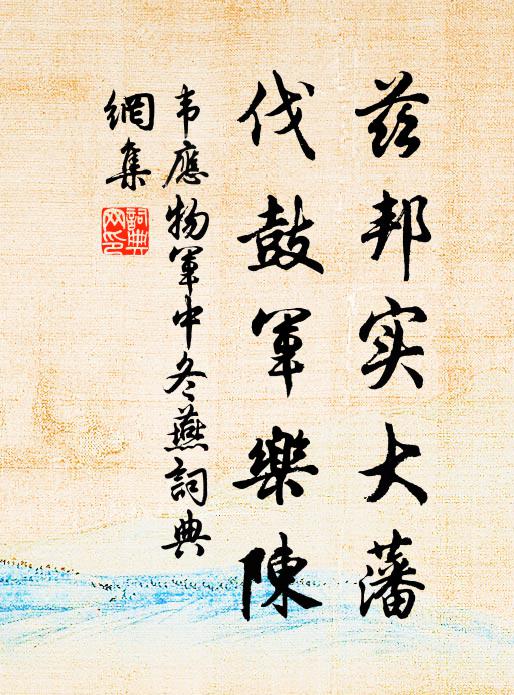 兹邦实大藩
伐鼓軍樂陳
韦應物軍中冬燕詞典
網集
詞典
网印